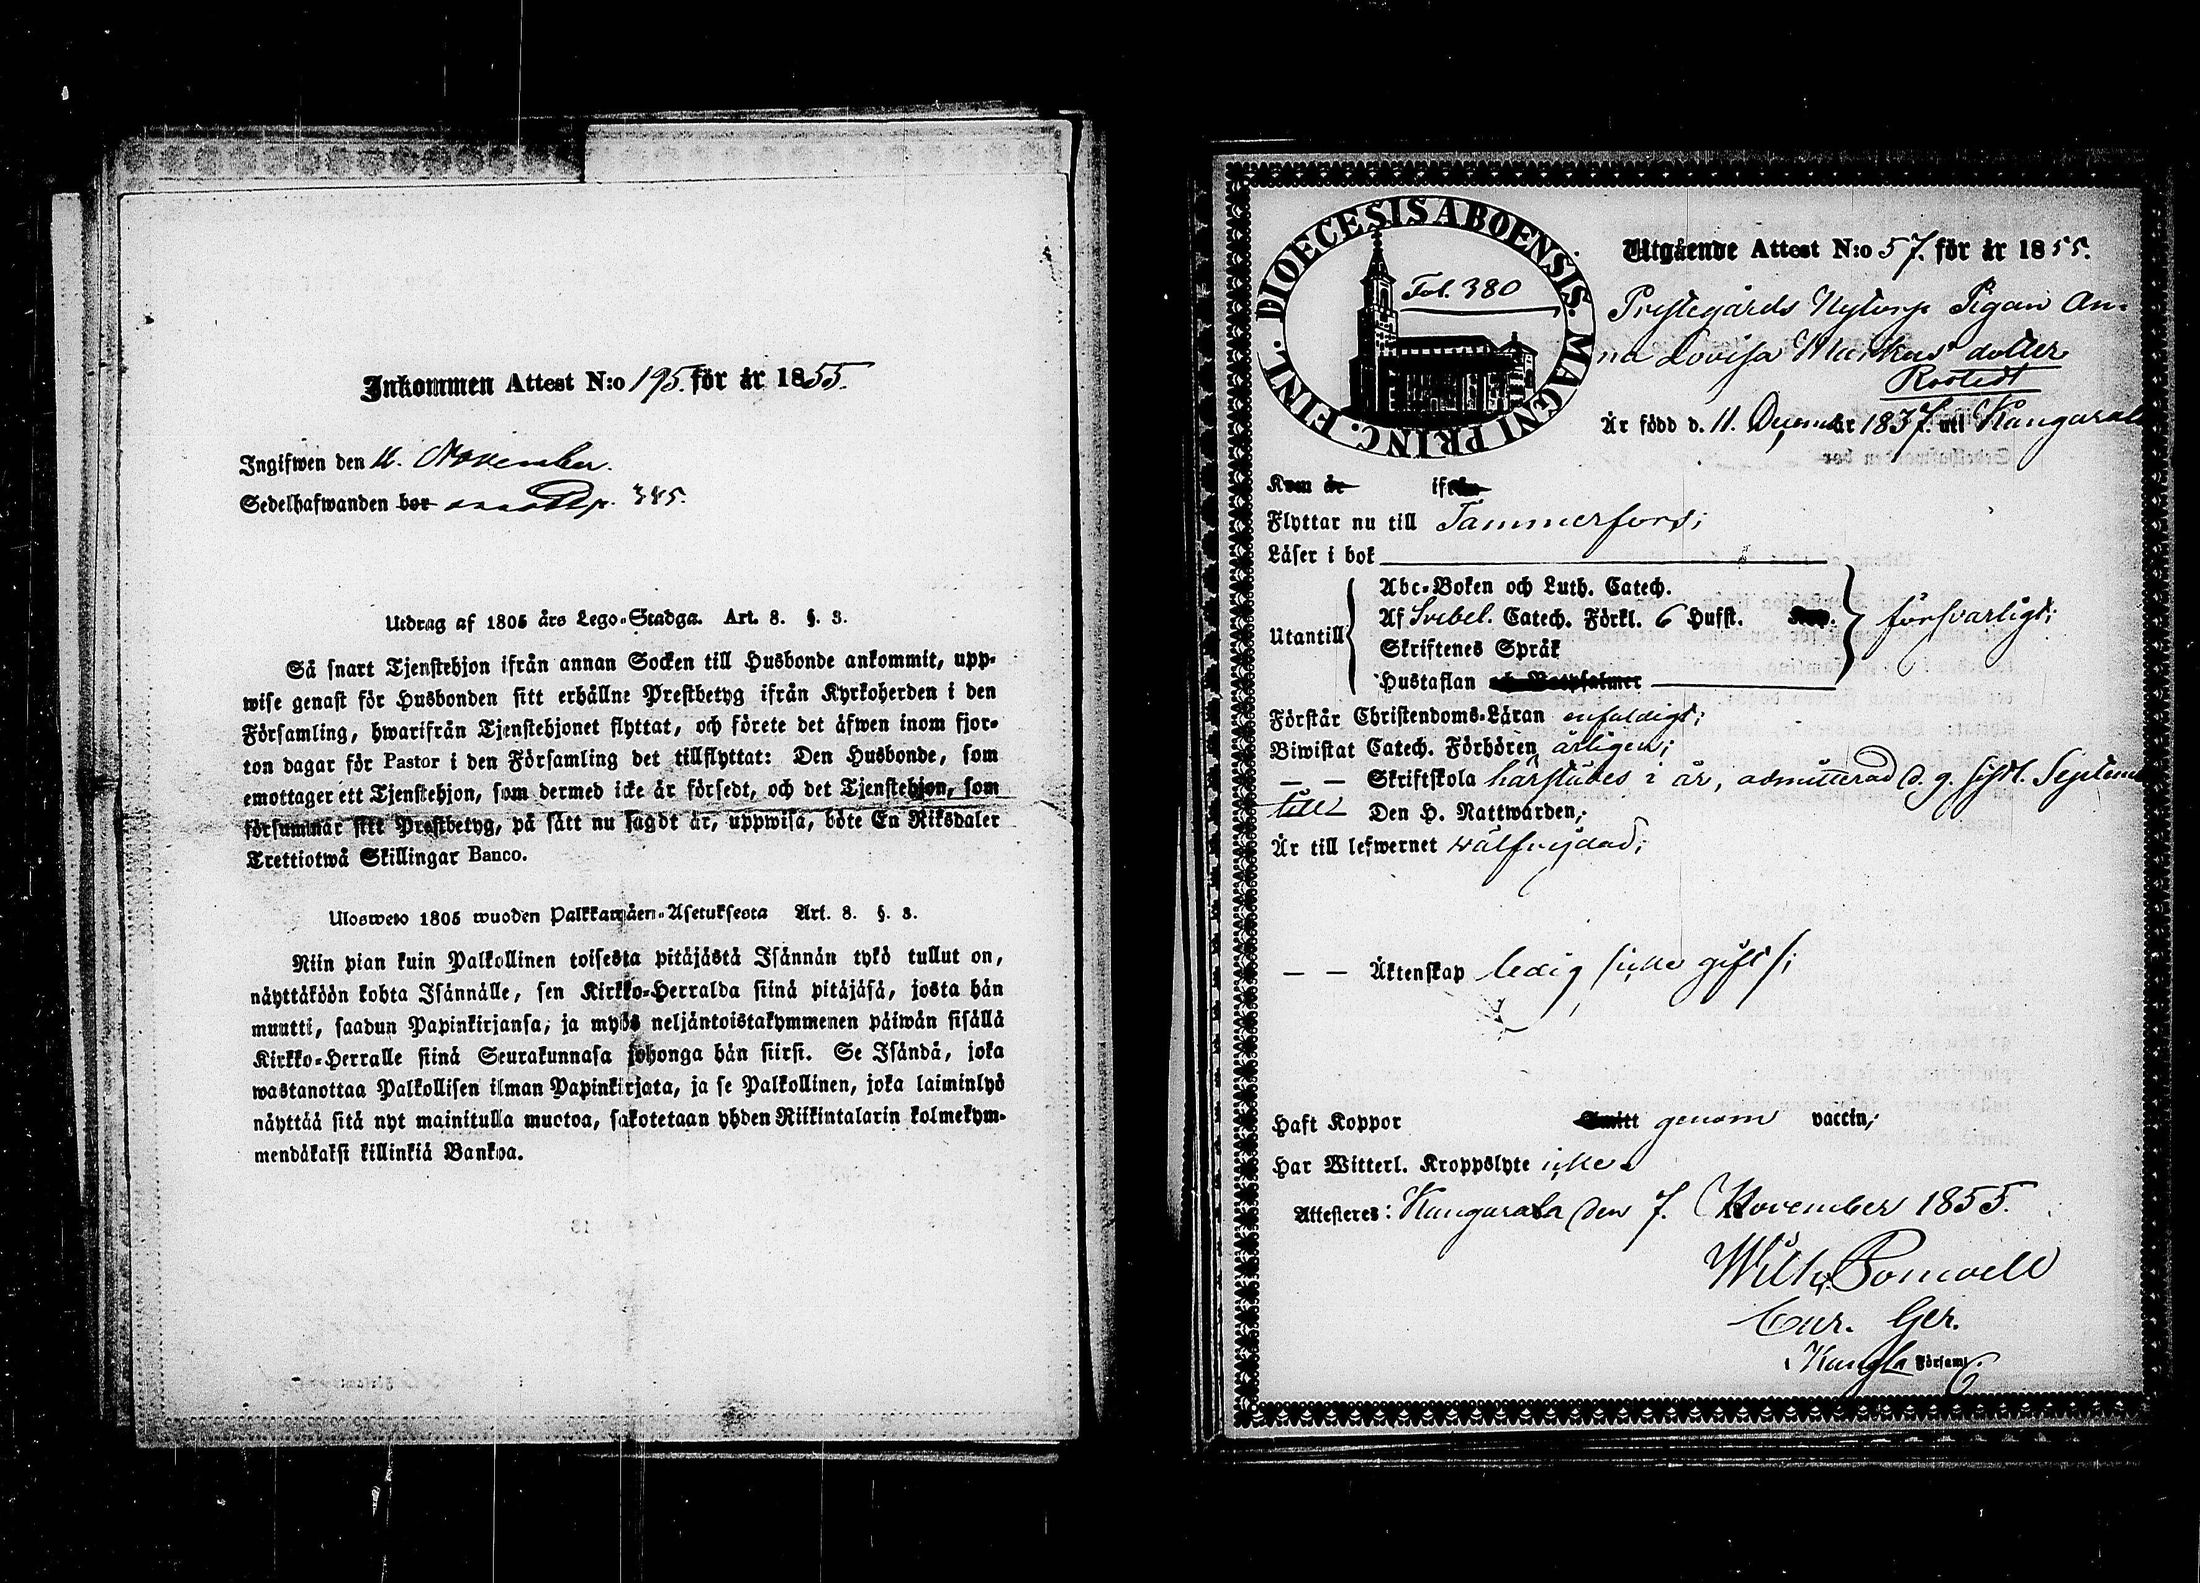 Inkommen Attest N:o 195. för år 1855.
Ingifwen den 11. November.
Sedelhafwanden bor 385.
Utdrag af 1805 års Lego-Stadga. Art. 8. §. 3.
Så snart Tjenstehjon ifrån annan Socken till Husbonde ankommit, upp-
wise genast för Husbonden sitt erhållne Prestbetyg ifrån Kyrkoherden i den
Församling, hwarifrån Tjenstehjonet flyttat, och förete det äfwen inom fjor-
ton dagar för Pastor i den Församling det tillflyttat: Den Husbonde, som
emottager ett Tjenstehjon, som dermed icke är försedt, och det Tjenstehjon, som
försummar sitt Prestbetyg, på sätt nu sagdt är, uppwisa, böte En Riksdaler
Trettiotwå Skillingar Banco.
Ulosweto 1805 wuoden Palkkawäen-Asetuksesta Art. 8. §. 3.
Niin pian kuin Palkollinen toisesta pitäjästä Isännän tykö tullut on,
näyttäköön kohta Isännälle, sen Kirkko-Herralda siinä pitäjäsä, josta hän
muutti, saadun Papinkirjansa, ja myös neljäntoistakymmenen päiwän sisällä
Kirkko-Herralle siinä Seurakunnasa johonga hän siirsi. Se Isändä, joka
wastanottaa Palkollisen ilman Papinkirjata, ja se Palkollinen, joka laiminlyö
näyttää sitä nyt mainitulla muotoa, sakotetaan yhden Riikintalarin kolmekym-
mendäkaksi killinkiä Bankoa.
DIOECESIS ABOENSIS. MAGNI PRINC. FINL.
Fol. 380
Utgående Attest N:o 57. för år 1855.
Prestegårds Nytorp Pigan An-
na Lovisa Markus dotter
Rostedt
Är född d. 11. December 1837. uti Kangasala
Kom år ifrån
Flyttar nu till Tammerfors;
Läser i bok
Abc-Boken och Luth. Catech.
Utantill Af Svebel. Catech. Förkl. 6 Hufst. försvarligt;
Skriftenes Språk
Hustaflan
Förstår Christendoms-Läran enfaldigt;
Biwistat Catech. Förhören årligen;
— — Skriftskola härstädes i år, admitterad d. 9. sistl. Septem
till Den H. Nattwarden;
Är till lefwernet wälfrejdad;
— — Äktenskap ledig /icke gift/;
Haft Koppor Smitt genom vaccin;
Har Witterl. Kroppslyte icke.
Attesteres: Kangasala den 7. November 1855.
Wilh.
Cur. Ger.
Kangla Församl.